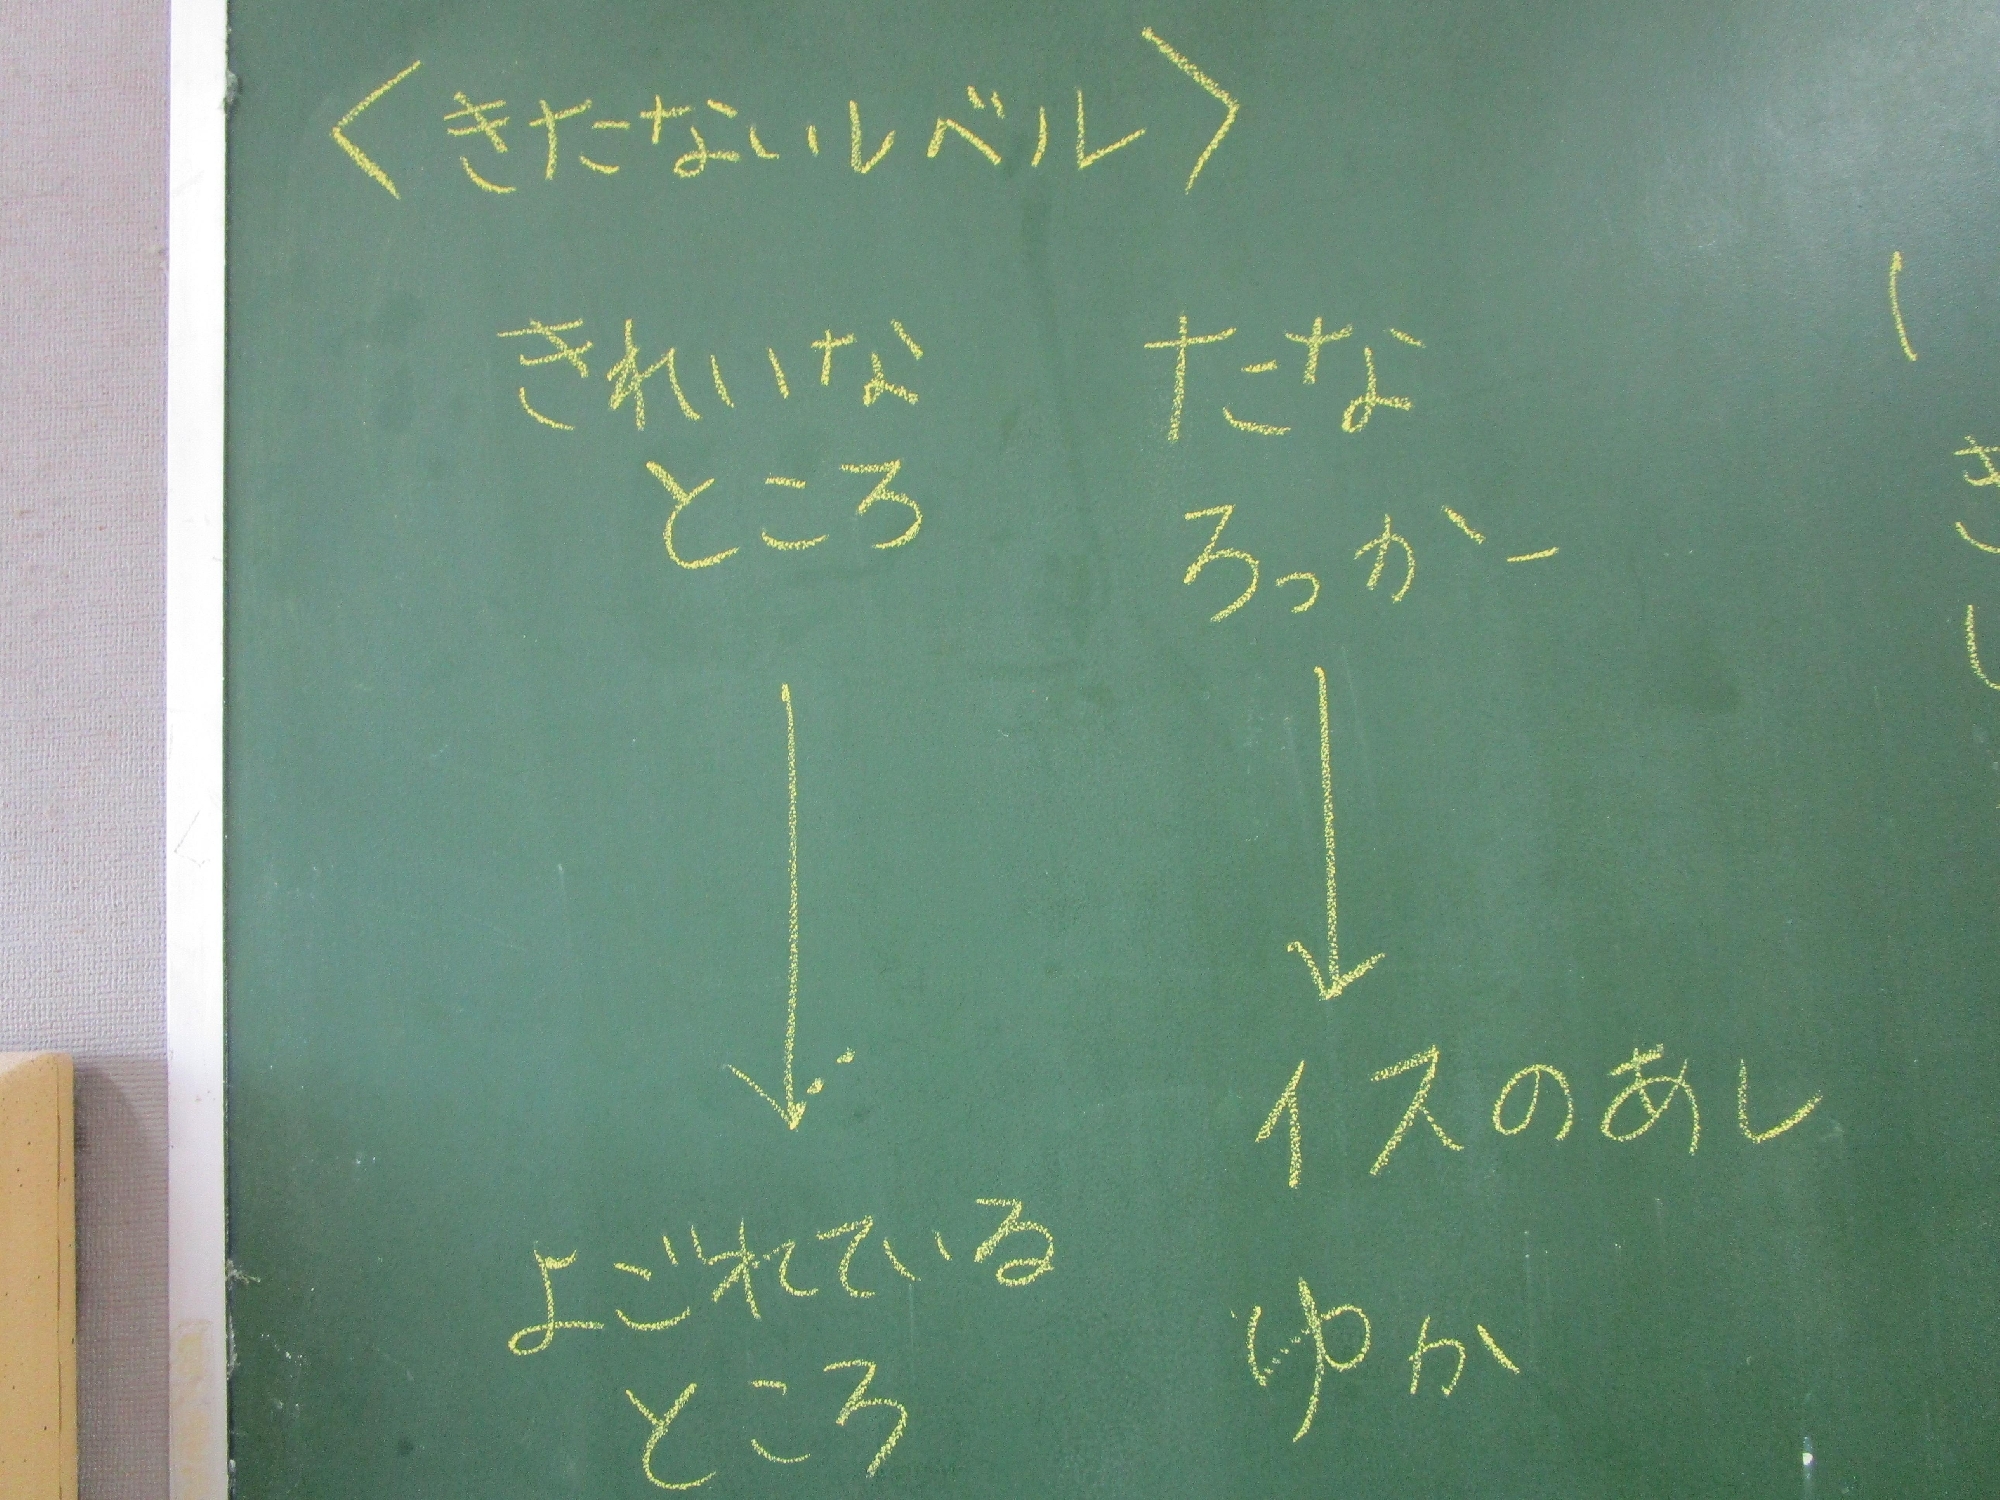 〈きたないレベル〉
きれいな
ところ
↓
よごれている
ところ
たな
ろっかー
↓
イスのあし
ゆか
き
し